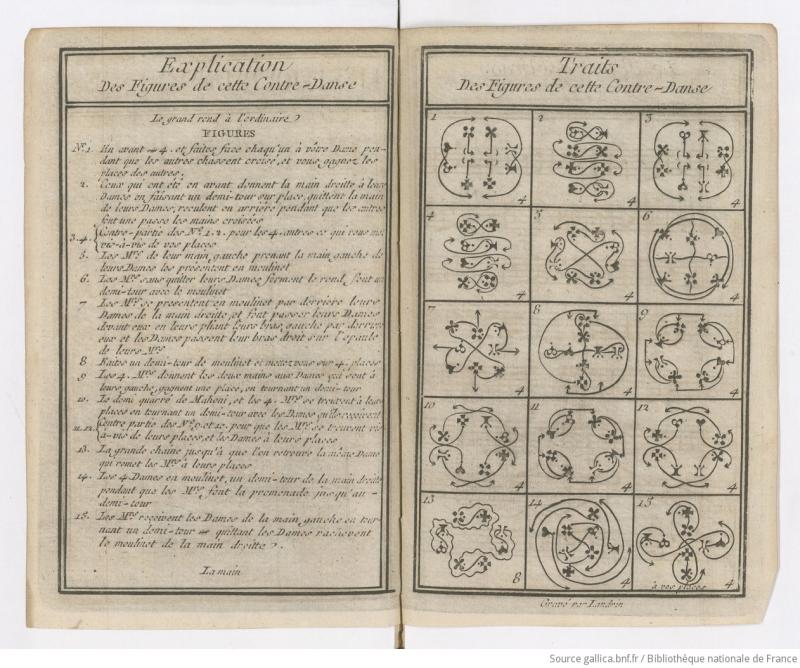 Explication
Des Figures de cette Contre-Danse
Le grand rond à l'ordinaire
FIGURES
No. 1. En avant 4. et faites face chaqu'un à vôtre Dame pen-
dant que les autres chassent croisé, et vous gagnez les
places des autres.
2. Ceux qui ont été en avant donnent la main droitte à leurs
Dames en faisant un demi-tour sur place, quittent la main
de leurs Dames, reculent en arriere pendant que les autres
font une passe les mains croisées
3.4. Contre-partie des No. 1. 2. pour les 4. autres ce qui vous met
vis-à-vis de vos places
5. Les Mrs. de leur main gauche prenant la main gauche de
leurs Dames les présentent en moulinet
6. Les Mrs. sans quitter leurs Dames forment le rond, font un
demi-tour avec le moulinet
7. Les Mrs. se présentent en moulinet par derriere leurs
Dames de la main droite, et font passer leurs Dames
devant eux en leurs pliant leurs bras gauche par derriere
eux et les Dames passent leur bras droit sur l'epaule
de leurs Mrs.
8 Faites un demi-tour de moulinet et mettez vous sur 4. places
9 Les 4. Mrs. donnent les deux mains aux Dames qui sont à
leurs gauche, gagnent une place, en tournant un demi-tour
10. Le demi quarré de Mahoni, et les 4. Mrs. se trouvent à leurs
places en tournant un demi-tour avec les Dames qu'ils reçoivent
11.12. Contre partie des No. 9 et 10. pour que les Mrs. se trouvent vis
à-vis de leurs places, et les Dames à leurs places
13. La grande chaine jusqu'à que l'on retrouve la même Dame
qui remet les Mrs. à leurs places
14. Les 4 Dames en moulinet, un demi-tour de la main droite
pendant que les Mrs. font la promenade jusqu'au
demi-tour
15. Les Mrs. reçoivent les Dames de la main gauche en tour-
nant un demi-tour quittant les Dames rachevent
le moulinet de la main droitte.
La main
Traits
Des Figures de cette Contre-Danse
1 2 3
4 4 4
4 5 6
4 4 4
7 8 9
4 4 4
10 11 12
4 4 4
13 14 15
8 4 4
à vos places
Gravé par Landrin
Source gallica.bnf.fr / Bibliothèque nationale de France